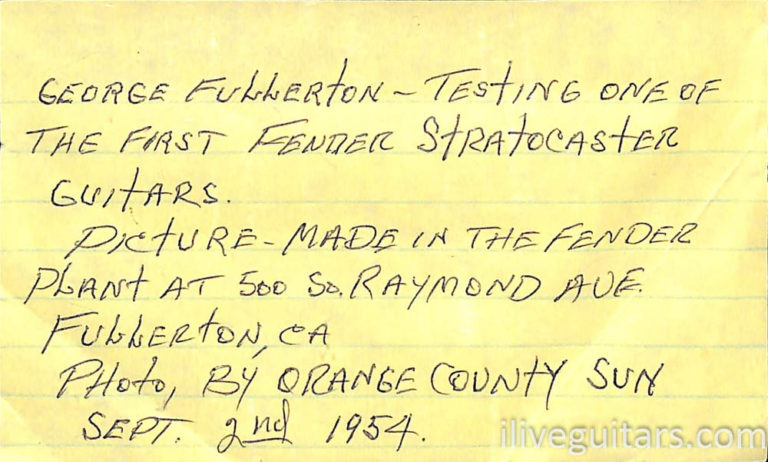 GEORGE FULLERTON - TESTING ONE OF
THE FIRST FENDER STRATOCASTER
GUITARS.
PICTURE - MADE IN THE FENDER
PLANT AT 500 SO. RAYMOND AVE.
FULLERTON, CA
PHOTO, BY ORANGE COUNTY SUN
SEPT. 2nd 1954.
iliveguitars.com